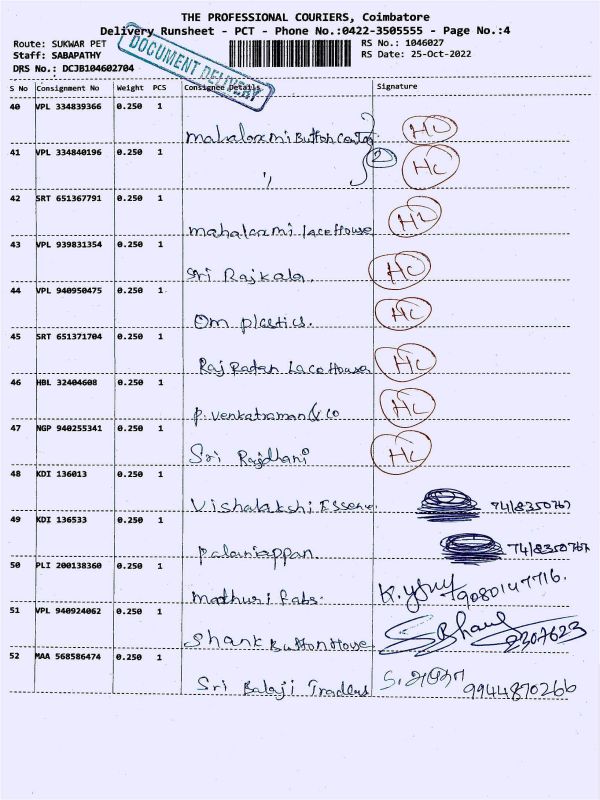 THE PROFESSIONAL COURIERS, Coimbatore
Delivery Runsheet - PCT - Phone No.:0422-3505555 - Page No.:4
Route: SUKWAR PET RS No.: 1046027
Staff: SABAPATHY RS Date: 25-Oct-2022
DRS No.: DCJB104602704
DOCUMENT DELIVERY
S No Consignment No Weight PCS Consignee Details Signature
40 VPL 334839366 0.250 1
mahalaxmi Button HC
41 VPL 334840196 0.250 1
" 2 HC
42 SRT 651367791 0.250 1
mahalaxmi lace House HC
43 VPL 939831354 0.250 1
Sri Rajkala. HC
44 VPL 940950475 0.250 1
Om plastics. HC
45 SRT 651371704 0.250 1
Raj Ratan Lace House HC
46 HBL 32404608 0.250 1
P. Venkatraman & co HC
47 NGP 940255341 0.250 1
Sri Rajdhani HC
48 KDI 136013 0.250 1
Vishalakshi Essence 7418350767
49 KDI 136533 0.250 1
Palaniappan 7418350767
50 PLI 200138360 0.250 1
Madhuri Fabs. 9080147716.
51 VPL 940924062 0.250 1
Shank Button House
52 MAA 568586474 0.250 1
Sri Balaji Traders 9944870266